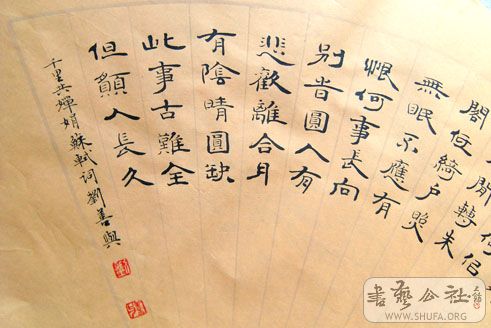 間轉朱
閣低綺戶照
無眠不應有
恨何事長向
別旹圓人有
悲歡離合月
有陰晴圓缺
此事古難全
但願人長久
千里共嬋娟蘇軾詞劉善與
書藝公社
WWW.SHUFA.ORG